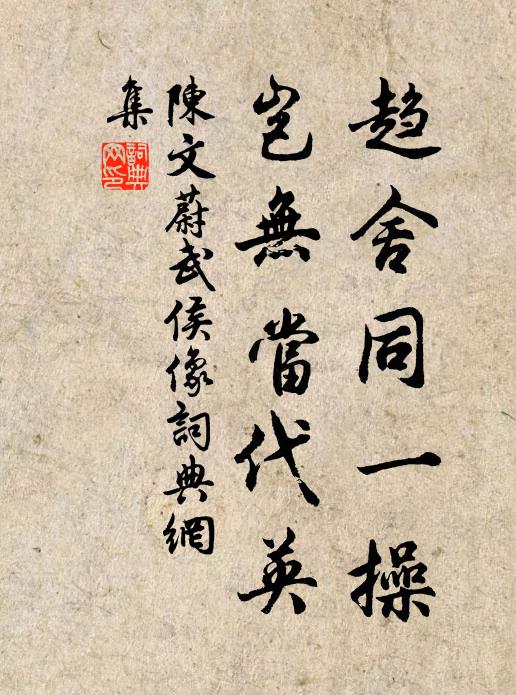 趨舍同一操
豈無當代英
陳文蔚武侯像詞典網
集
詞典
网印